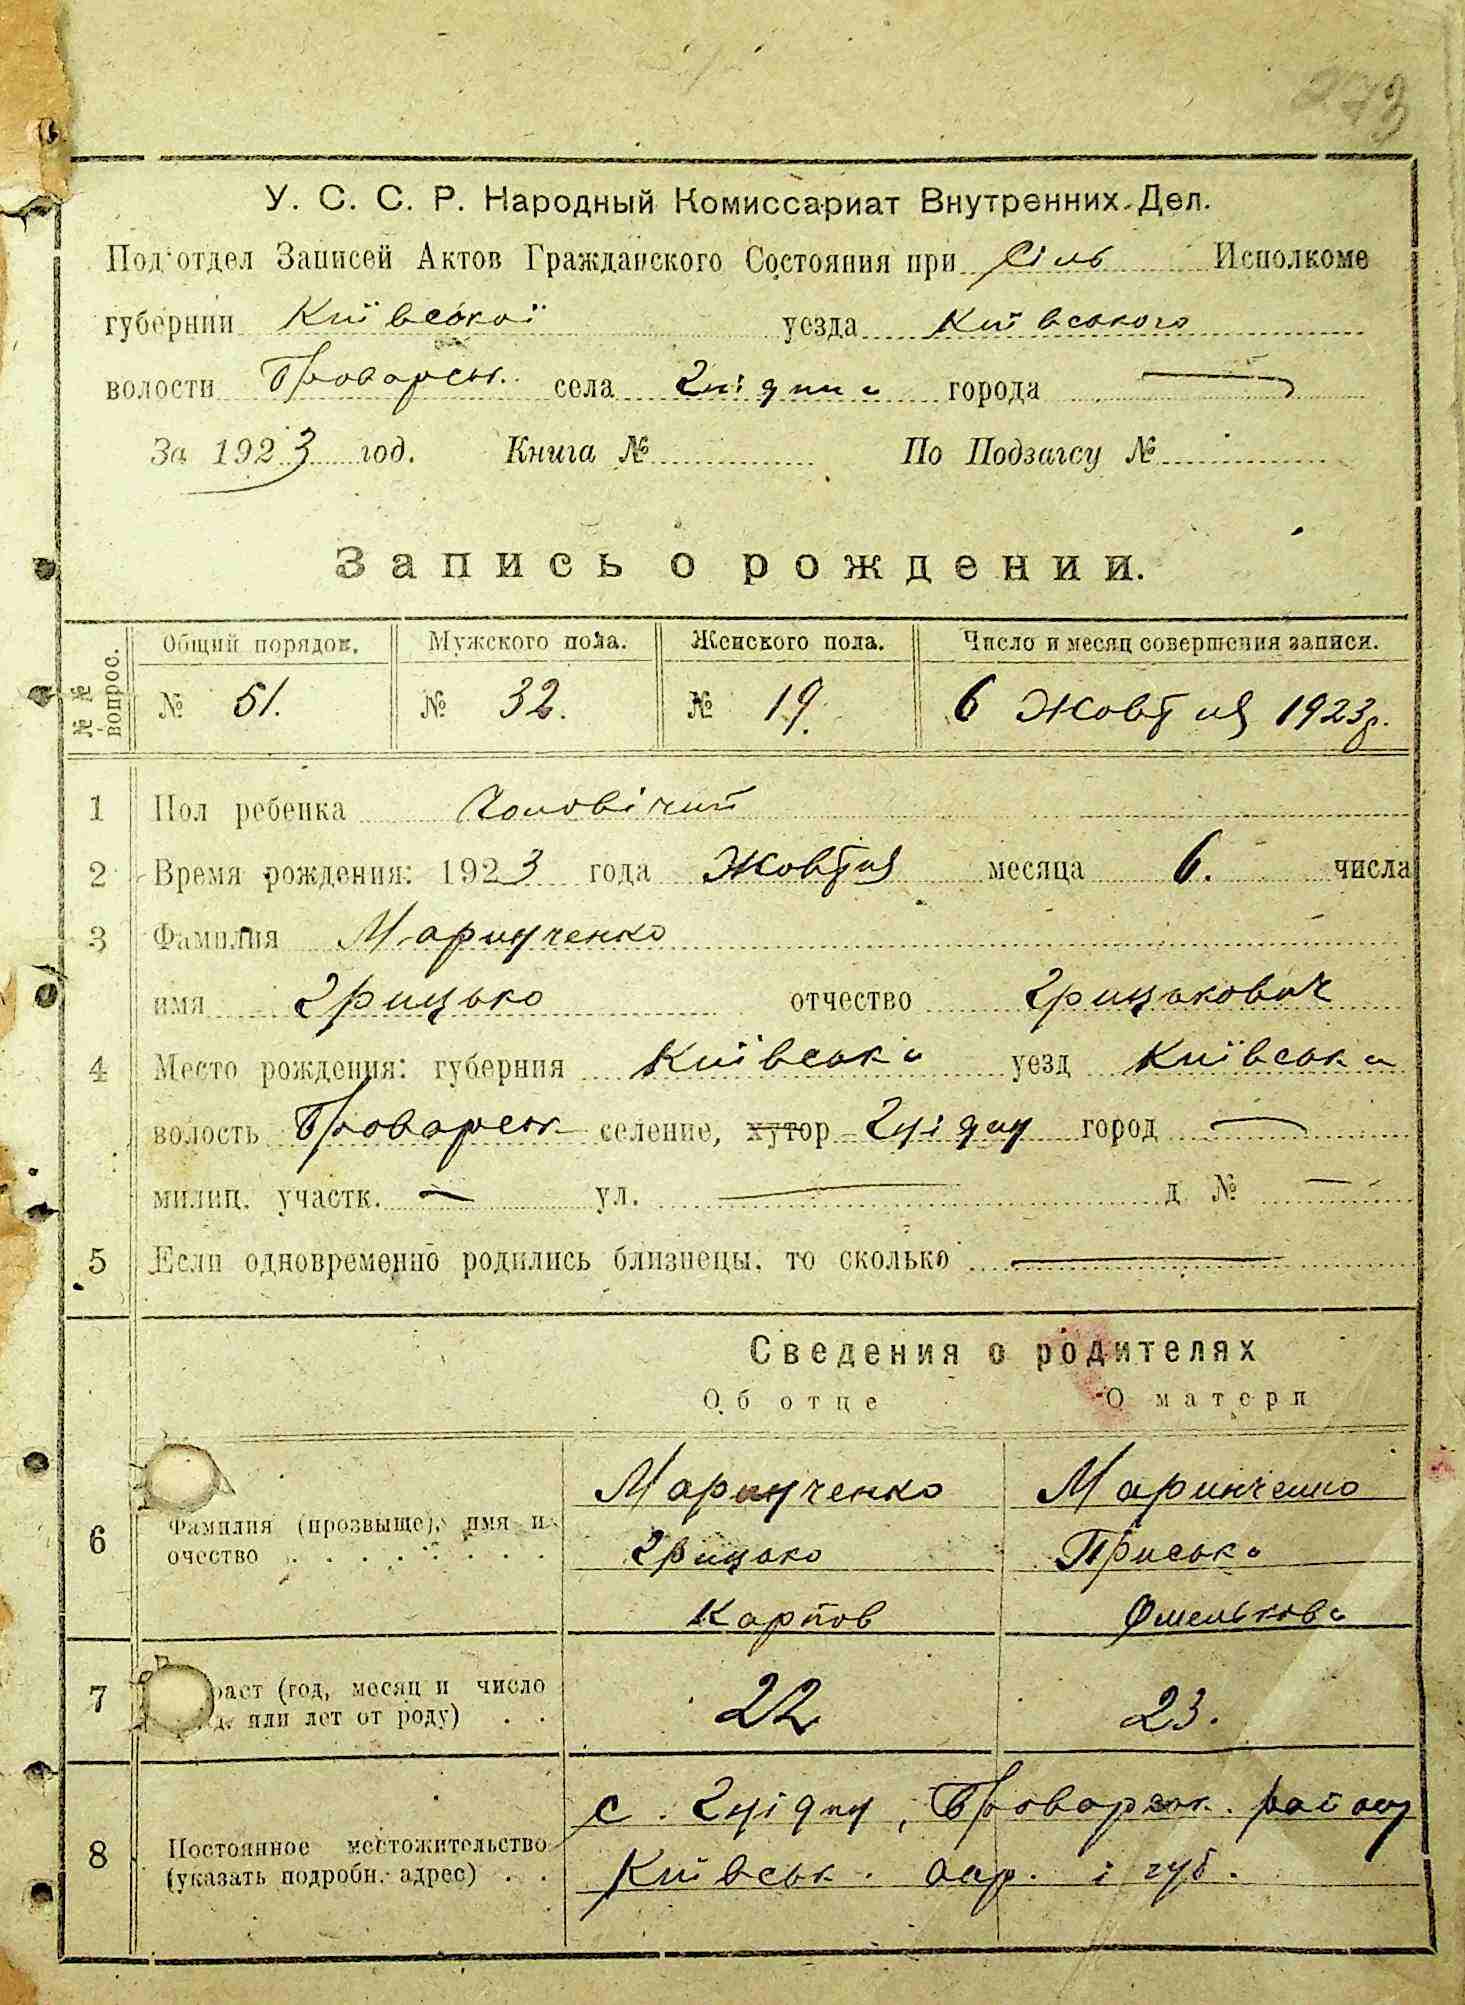 273
У. С. С. Р. Народный Комиссариат Внутренних Дел.
Под'отдел Записей Актов Гражданского Состояния при Сіль Исполкоме
губернии Київської уезда Київського
волости Броварськ. села Гнідина города —
За 1923 год. Книга № По Подзагсу №
Запись о рождении.
№№ вопрос. Общий порядок. Мужского пола. Женского пола. Число и месяц совершения записи.
№ 51. № 32. № 19. 6 Жовтня 1923 р.
1 Пол ребенка Чоловічий
2 Время рождения: 1923 года Жовтня месяца 6. числа
3 Фамилия Маринченко
имя Грицько отчество Грицькович
4 Место рождения: губерния Київська уезд Київська
волость Броварськ селение, хутор Гнідин город —
милиц. участк. — ул. — д. № —
5 Если одновременно родились близнецы, то сколько —
Сведения о родителях
Об отце О матери
Маринченко Маринченко
6 Фамилия (прозвыще), имя и Грицько Приська
очество
Карпов Омелькова
7 раст (год, месяц и число 22 23.
или лет от роду)
с. Гнідин, Броварськ. району
8 Постоянное местожительство
(указать подробн. адрес) Київськ. окр. і губ.